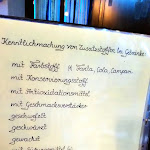 Kenntlichmachung von Zusatzstoffen bei Getränke
mit Farbstoff z.B. Fanta, Cola, Campari
mit Konservierungsstoff
mit Antioxidationsmittel
mit Geschmacksverstärker
geschwefelt
geschwärzt
gewachst